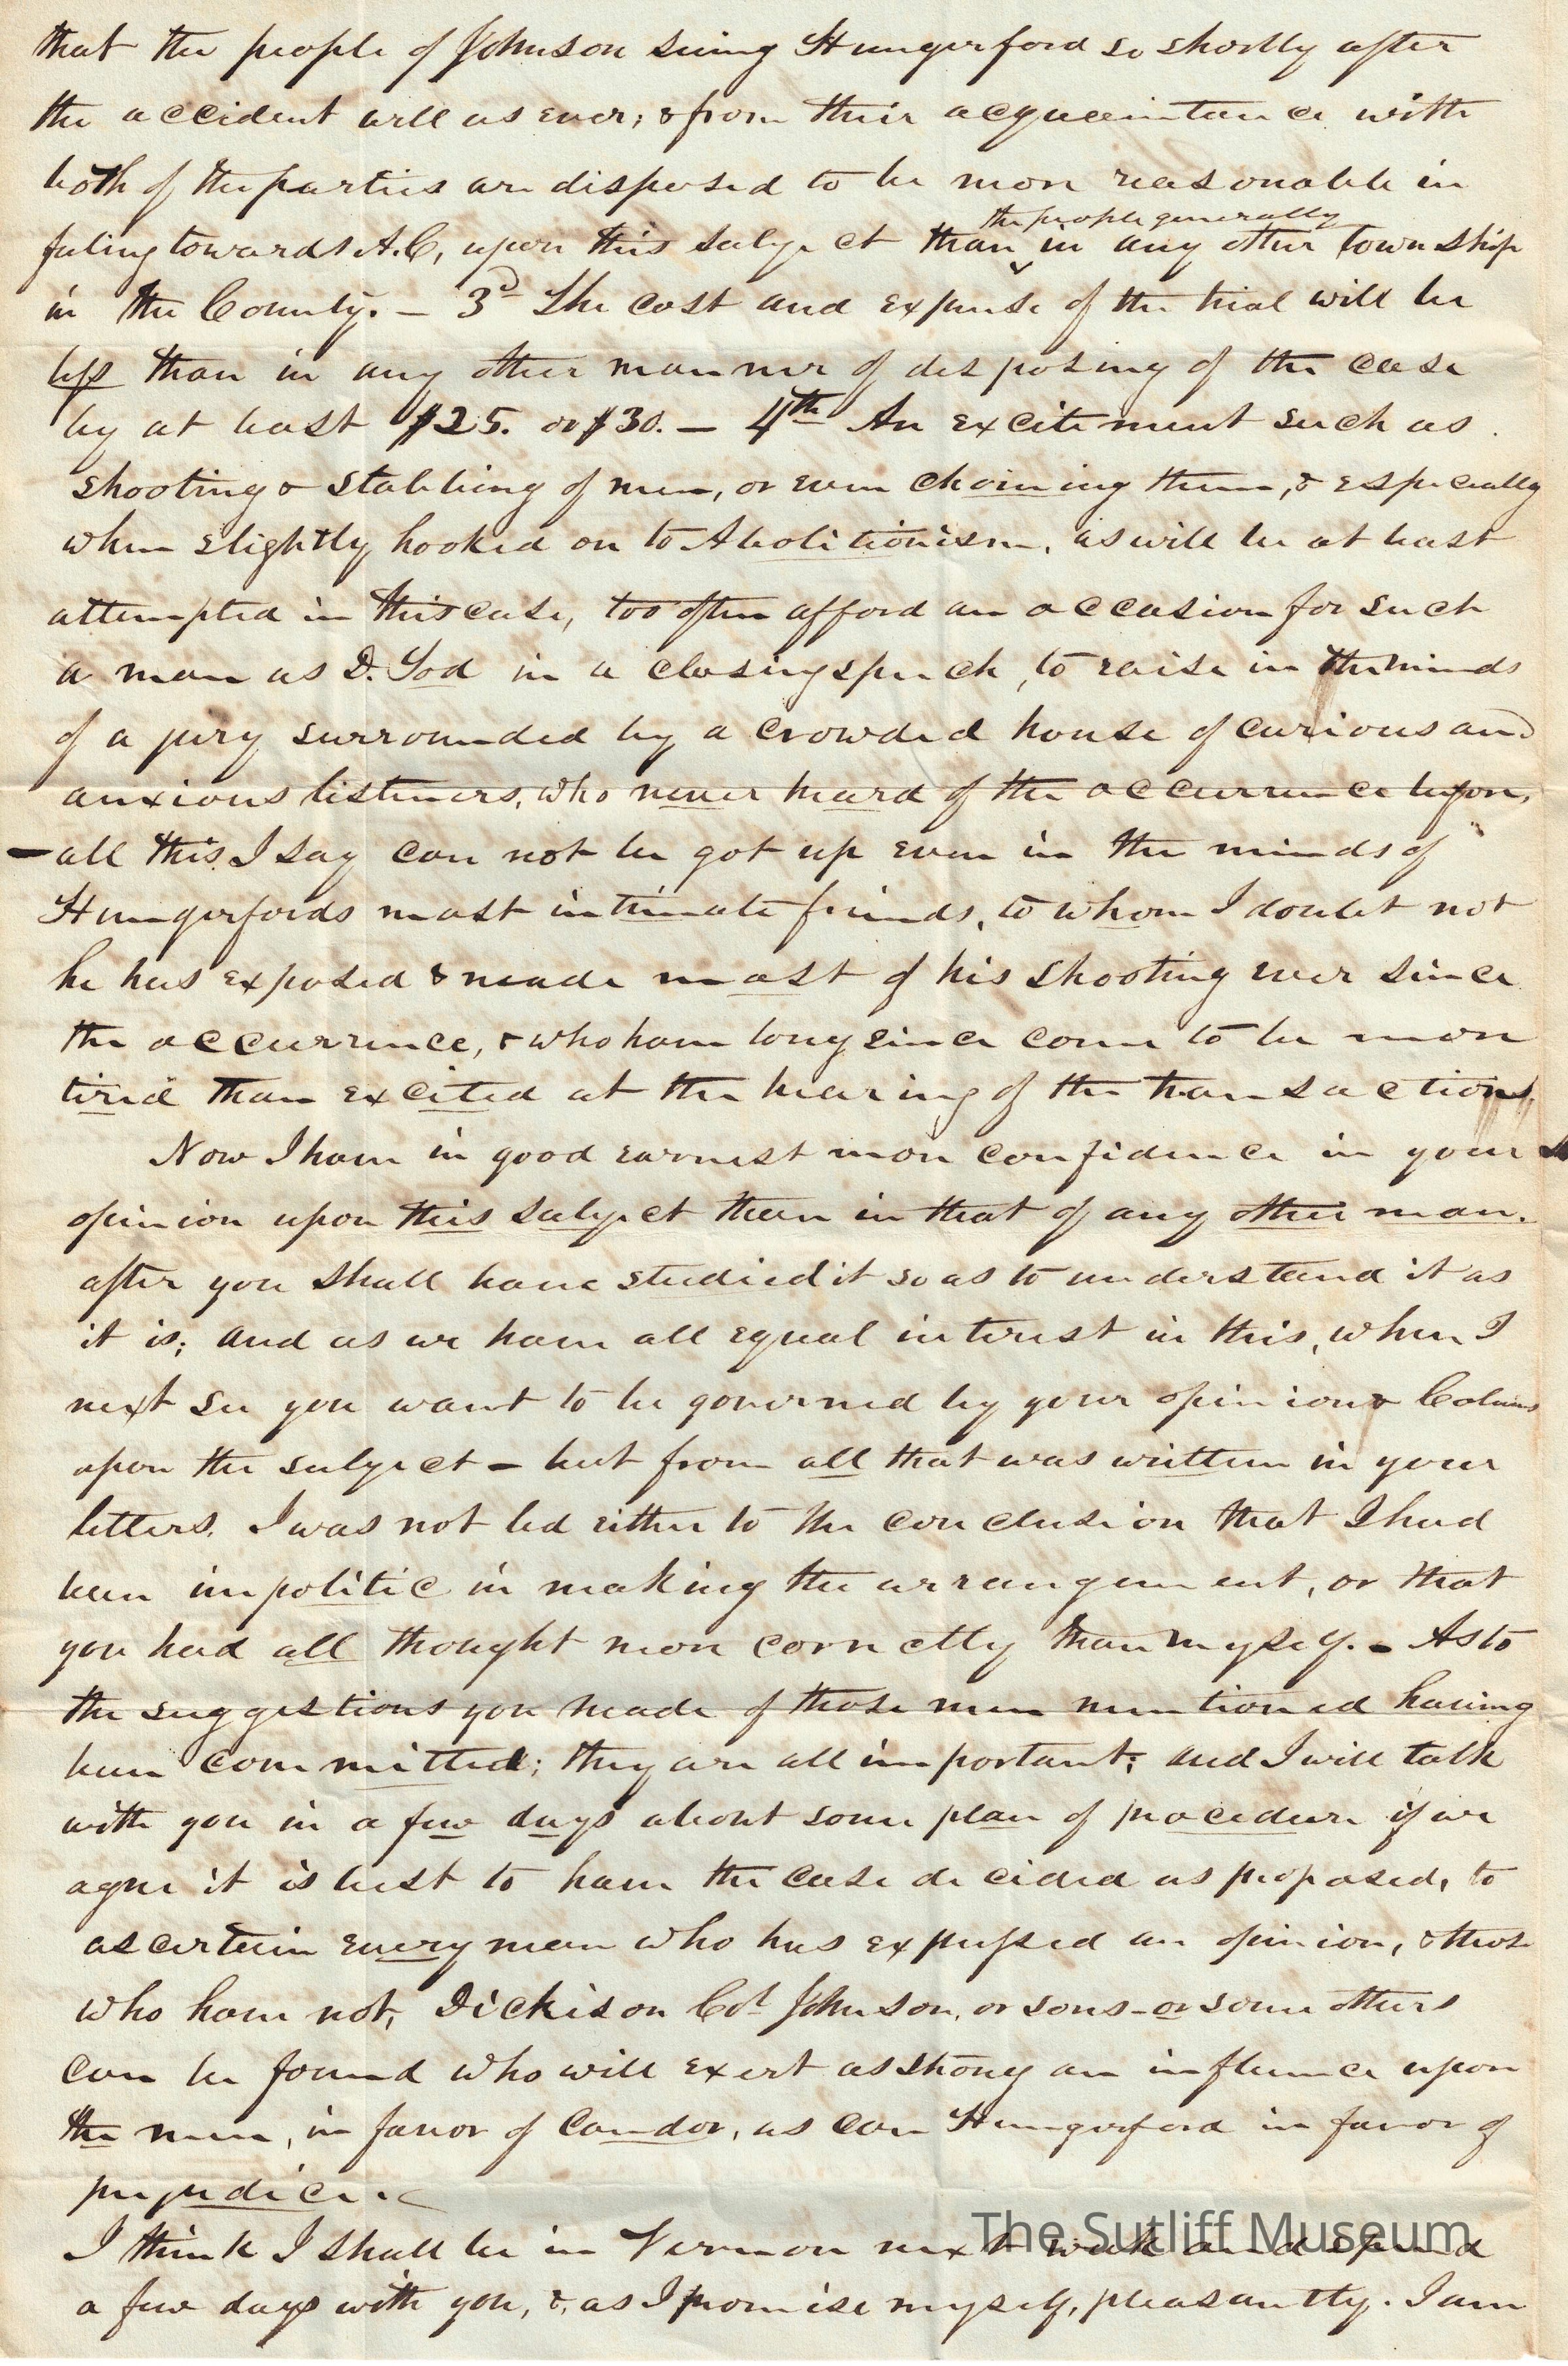 that the people of Johnson seeing Hungerford so shortly after
the accident well as ever; & from their acquaintance with
both of the parties are disposed to be more reasonable in
feeling towards A.C, upon this subject than in any other township
the people generally
in the County. – 3d The cost and expense of the trial will be
less than in any other manner of desposing of the case
by at least $25. or $30. – 4th An excitement such as
shooting & stabbing of men, or even chaining them, & especially
when slightly hooked on to Abolitionism, as will be at least
attempted in this case, too often afford an occasion for such
a man as D. Tod in a closing speech, to raise in the minds
of a jury surrounded by a crowded house of curious and
anxious listeners, who never heard of the occurrence before,
– all this I say can not be got up even in the minds of
Hungerfords most intimate friends, to whom I doubt not
he has exposed & made most of his shooting ever since
the occurrence, & who have long since come to be more
tired than excited at the hearing of the transactions.
Now I have in good earnest more confidence in your
opinion upon this subject than in that of any other man.
after you shall have studied it so as to understand it as
it is; and as we have all equal interest in this, when I
next see you want to be governed by your opinion & Calvins
upon the subject – but from all that was written in your
letters, I was not led either to the conclusion that I had
been impolitic in making the arrangement, or that
you had all thought more correctly than myself. – As to
the suggestions you made of those men mentioned having
been committed; they are all important; and I will talk
with you in a few days about some plan of procedure if we
agree it is best to have the case decided as proposed, to
ascertain every man who has expressed an opinion, & those
who have not, Dickison Col Johnson, or sons – or some others
can be found who will exert as strong an influence upon
the men, in favor of Candor, as can Hungerford in favor of
prejudice. –
I think I shall be in Vernon next week and spend
a few days with you, &, as I promise myself, pleasantly. I am
The Sutliff Museum